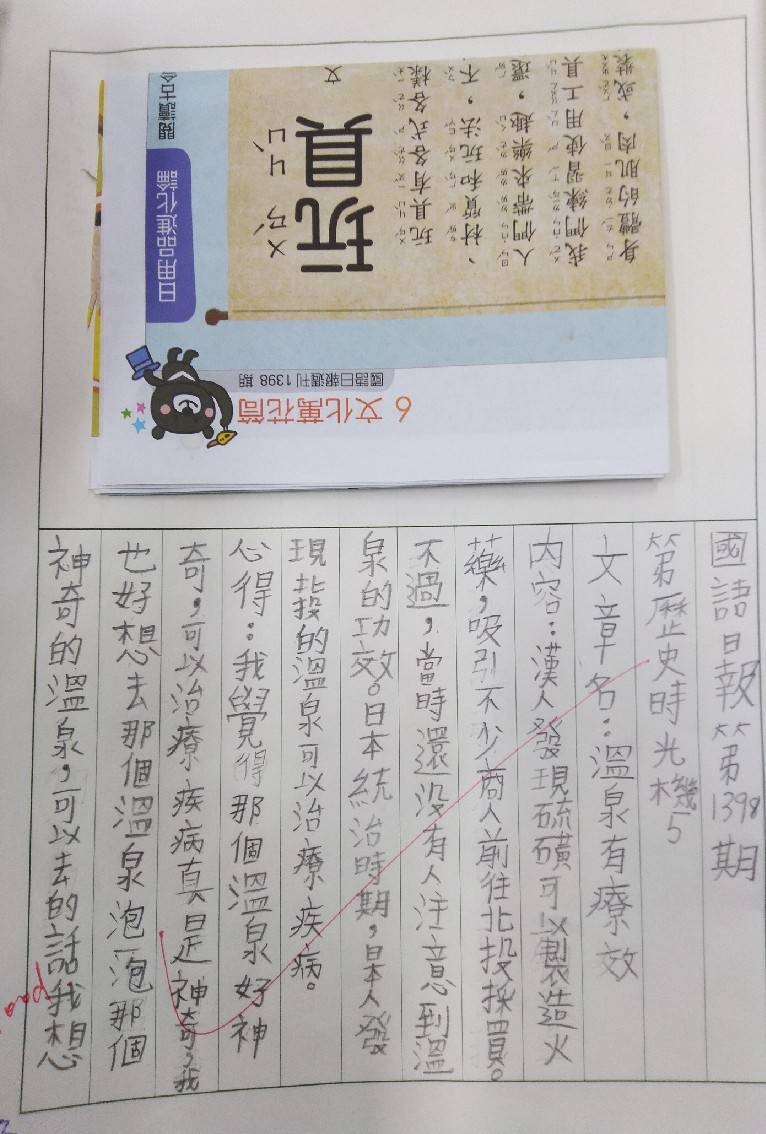 6 文化萬花筒
國語日報週刊 1398 期
日用品進化論
閱讀古今
玩具
ㄨㄢˊ ㄐㄩˋ
文
玩具有各式各樣
、材質和玩法，不
人們帶來樂趣，還
我們練習使用工具
身體的肌肉，或裝
國語日報第1398期
第歷史時光機5
文章名：溫泉有療效
內容：漢人發現硫磺可以製造火
藥，吸引不少商人前往北投採買。
不過，當時還沒有人注意到溫
泉的功效。日本統治時期，日本人發
現北投的溫泉可以治療疾病。
心得：我覺得那個溫泉好神
奇，可以治療疾病真是神奇，我
也好想去那個溫泉泡一泡那個
神奇的溫泉，可以去的話我想
ood